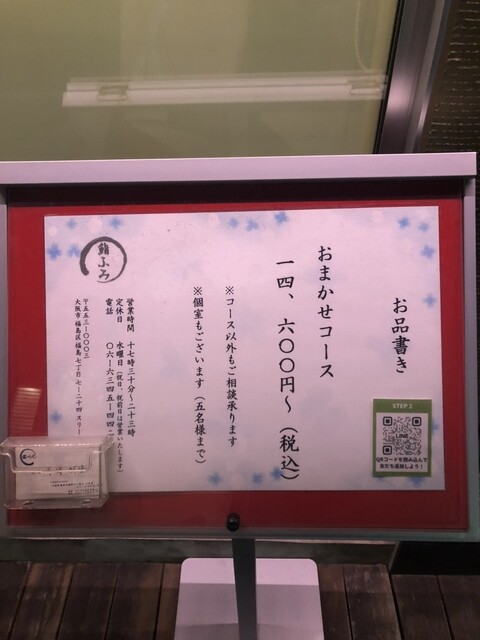 お品書き
おまかせコース
一四、六〇〇円～（税込）
※コース以外もご相談承ります
※個室もございます（五名様まで）
営業時間　十七時三十分～二十三時
定休日　水曜日（祝日、祝前日は営業いたします）
電話　〇六-六三四五-四四
〒五五三-〇〇〇三
大阪市福島区福島七丁目七-二四スリー
鮨ふみ
STEP 2
LINE
QRコードを読み込んで
友だち追加しよう！